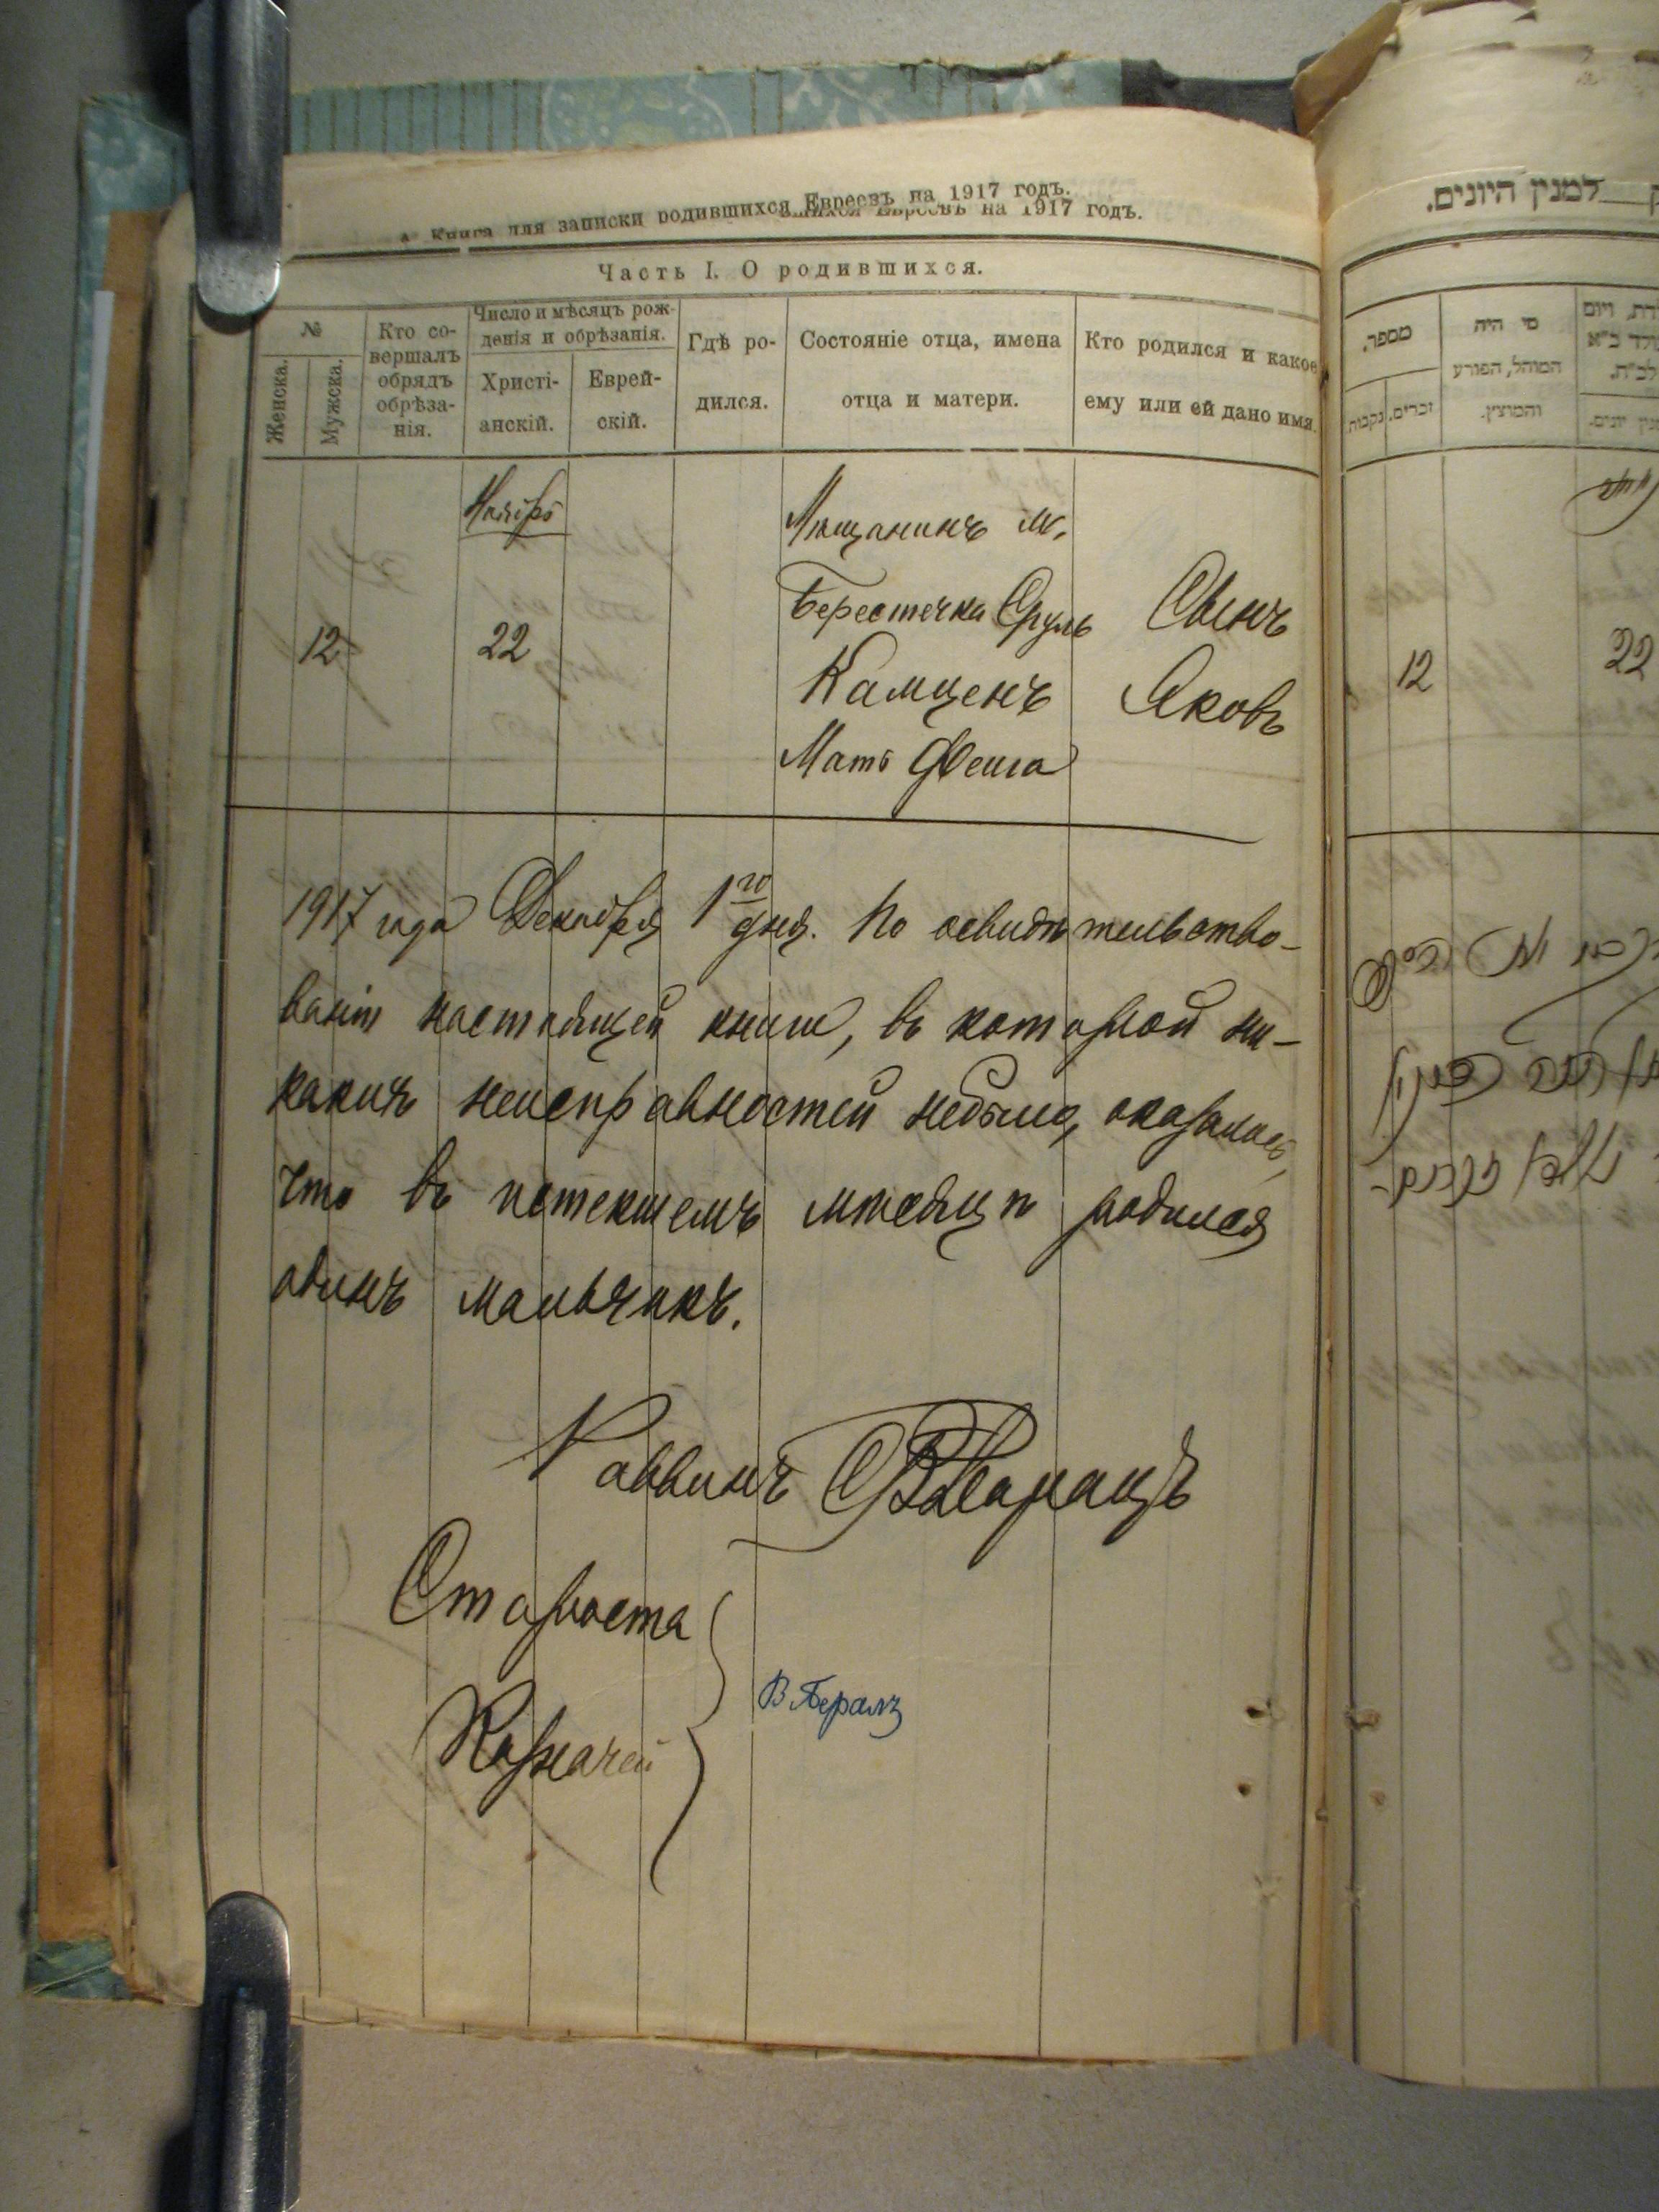 Книга для записки родившихся Евреевъ на 1917 годъ.
Евреевъ на 1917 годъ.
Часть I. О родившихся.
№
Женска.
Мужска.
Кто со-
вершалъ
обрядъ
обрѣза-
нія.
Число и мѣсяцъ рож-
денія и обрѣзанія.
Христі-
анскій.
Еврей-
скій.
Гдѣ ро-
дился.
Состояніе отца, имена
отца и матери.
Кто родился и какое
ему или ей дано имя.
Ноябрь
12
22
Мѣщанинъ м.
Берестечка Сруль
Камценъ
Мать Фейга
Сынъ
Яковъ
1917 года Декабря 1го дня. По освидѣтельство-
ваніи настоящей книги, въ которой ни-
какихъ неисправностей небыло, оказалось,
что въ истекшемъ мѣсяцѣ родился
одинъ мальчикъ.
Раввинъ
Староста
Казначей
למנין היונים.
מספר.
זכרים.
נקבות.
מי היה
המוהל, הפורע
והמוצץ.
12
22